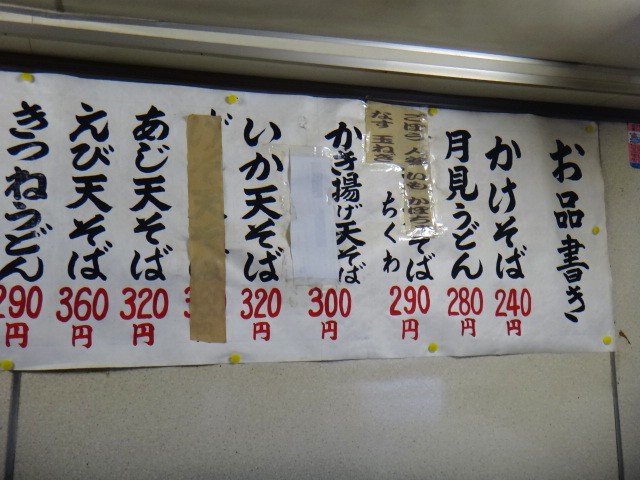 お品書き
かけそば
240
円
月見うどん
280
円
ごぼう 人参 いも かぼちゃ
なす 玉ねぎ
ちくわ
そば
290
円
かき揚げ天そば
300
円
いか天そば
320
円
あじ天そば
320
円
えび天そば
360
円
きつねうどん
290
円